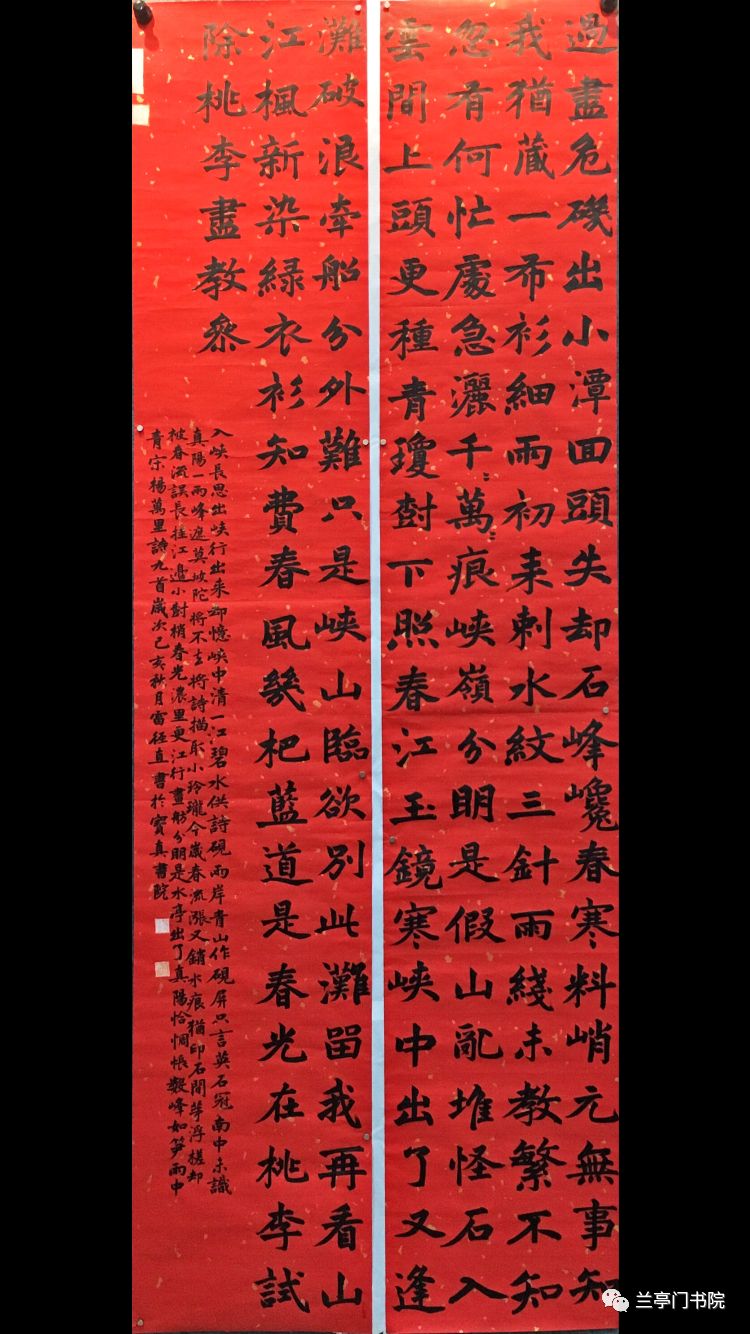 過盡危磯出小潭回頭失却石峰巉春寒料峭元無事知
我猶藏一布衫細雨初来刺水紋三針雨綫未教繁不知
忽有何忙處急灑千〻萬〻痕峽嶺分明是假山亂堆怪石入
雲間上頭更種青瓊樹下照春江玉鏡寒峽中出了又逢
灘破浪牽船分外難只是峽山臨欲別此灘留我再看山
江楓新染緑衣衫知費春風幾杷藍道是春光在桃李試
除桃李盡教叅
入峽長思出峽行出来却憶峽中清一江碧水供詩硯兩岸青山作硯屏只言英石冠南中未識
真陽一兩峰遮莫坡陀将不去将詩描取小玲瓏今歲春流漲又銷水痕猶印石間茅浮槎却
被春滋誤長挂江邊小樹梢春光濃里更江行畫舫分明是水亭出了真陽恰惆悵數峰如笋雨中
青宋楊萬里詩九首歲次己亥秋月雷任直書於寶真書院
兰亭门书院